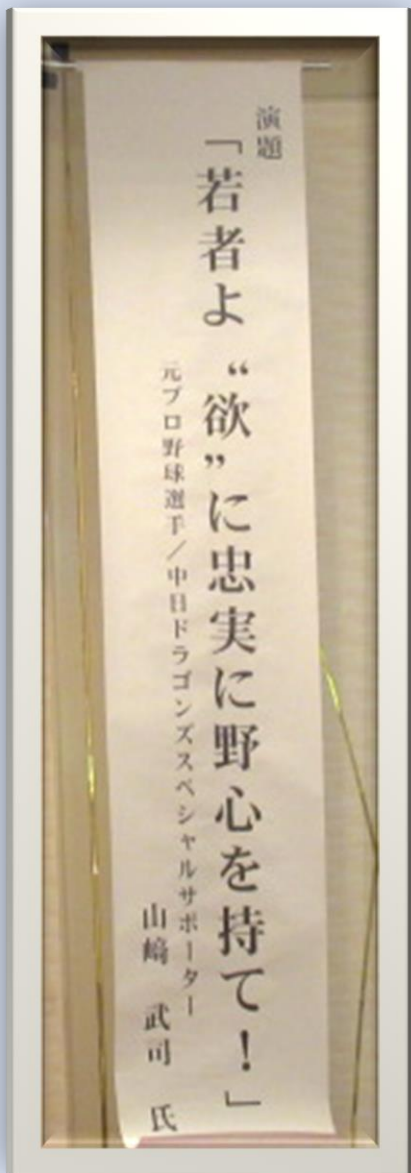 演題
「若者よ“欲”に忠実に野心を持て！」
元プロ野球選手／中日ドラゴンズスペシャルサポーター
山﨑 武司 氏